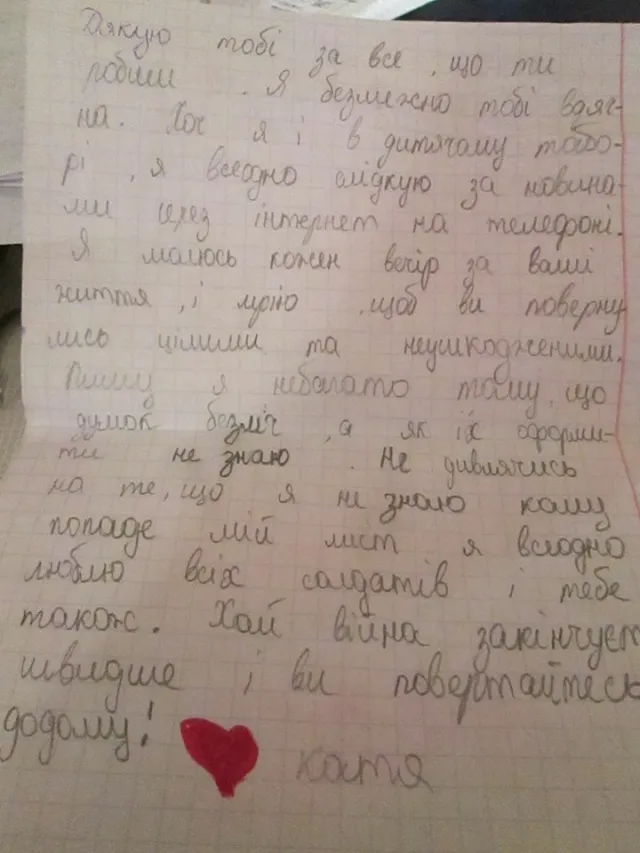 Дякую тобі за все, що ти
робиш. Я безмежно тобі вдяч-
на. Хоч я і в дитячому табо-
рі, я всеодно слідкую за новина-
ми через інтернет на телефоні.
Я молюсь кожен вечір за ваші
життя, і мрію, щоб ви поверну
лись цілими та неушкодженими.
Пишу я небагато тому, що
думок безліч, а як їх оформи-
ти не знаю. Не дивлячись
на те, що я не знаю кому
попаде мій лист я всеодно
люблю всіх солдатів і тебе
також. Хай війна закінчуєт
швидше і ви повертайтесь
додому!
Катя